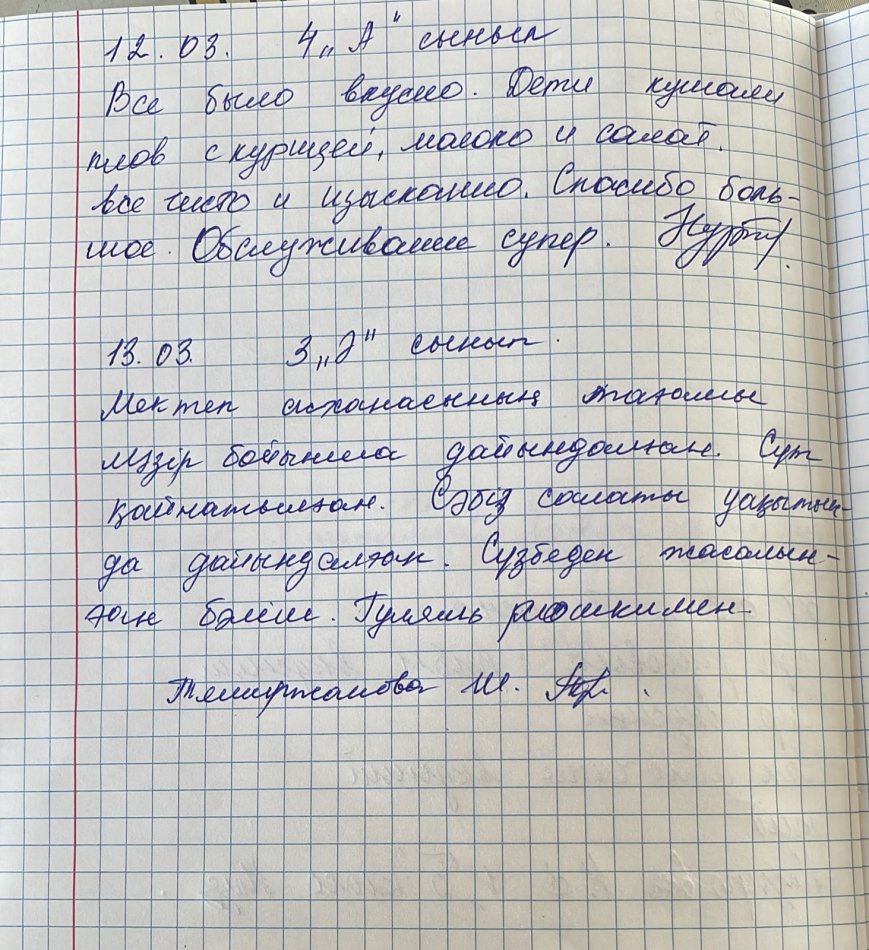 12.03. 4 „А" сынып
Все было вкусно. Дети кушали
плов с курицей, молоко и салат.
все чисто и изысканно. Спасибо боль-
шое. Обслуживание супер.
13.03. 3 „Ә" сынып.
Мектеп асханасының тағамы
мәзір бойынша дайындалған. Сүт
қайнатылған. Сәбіз салаты уақытын-
да дайындалған. Сүзбеден жасалын-
ған бәліш. Гуляшь рошкимен.
Темиржанова Ш.